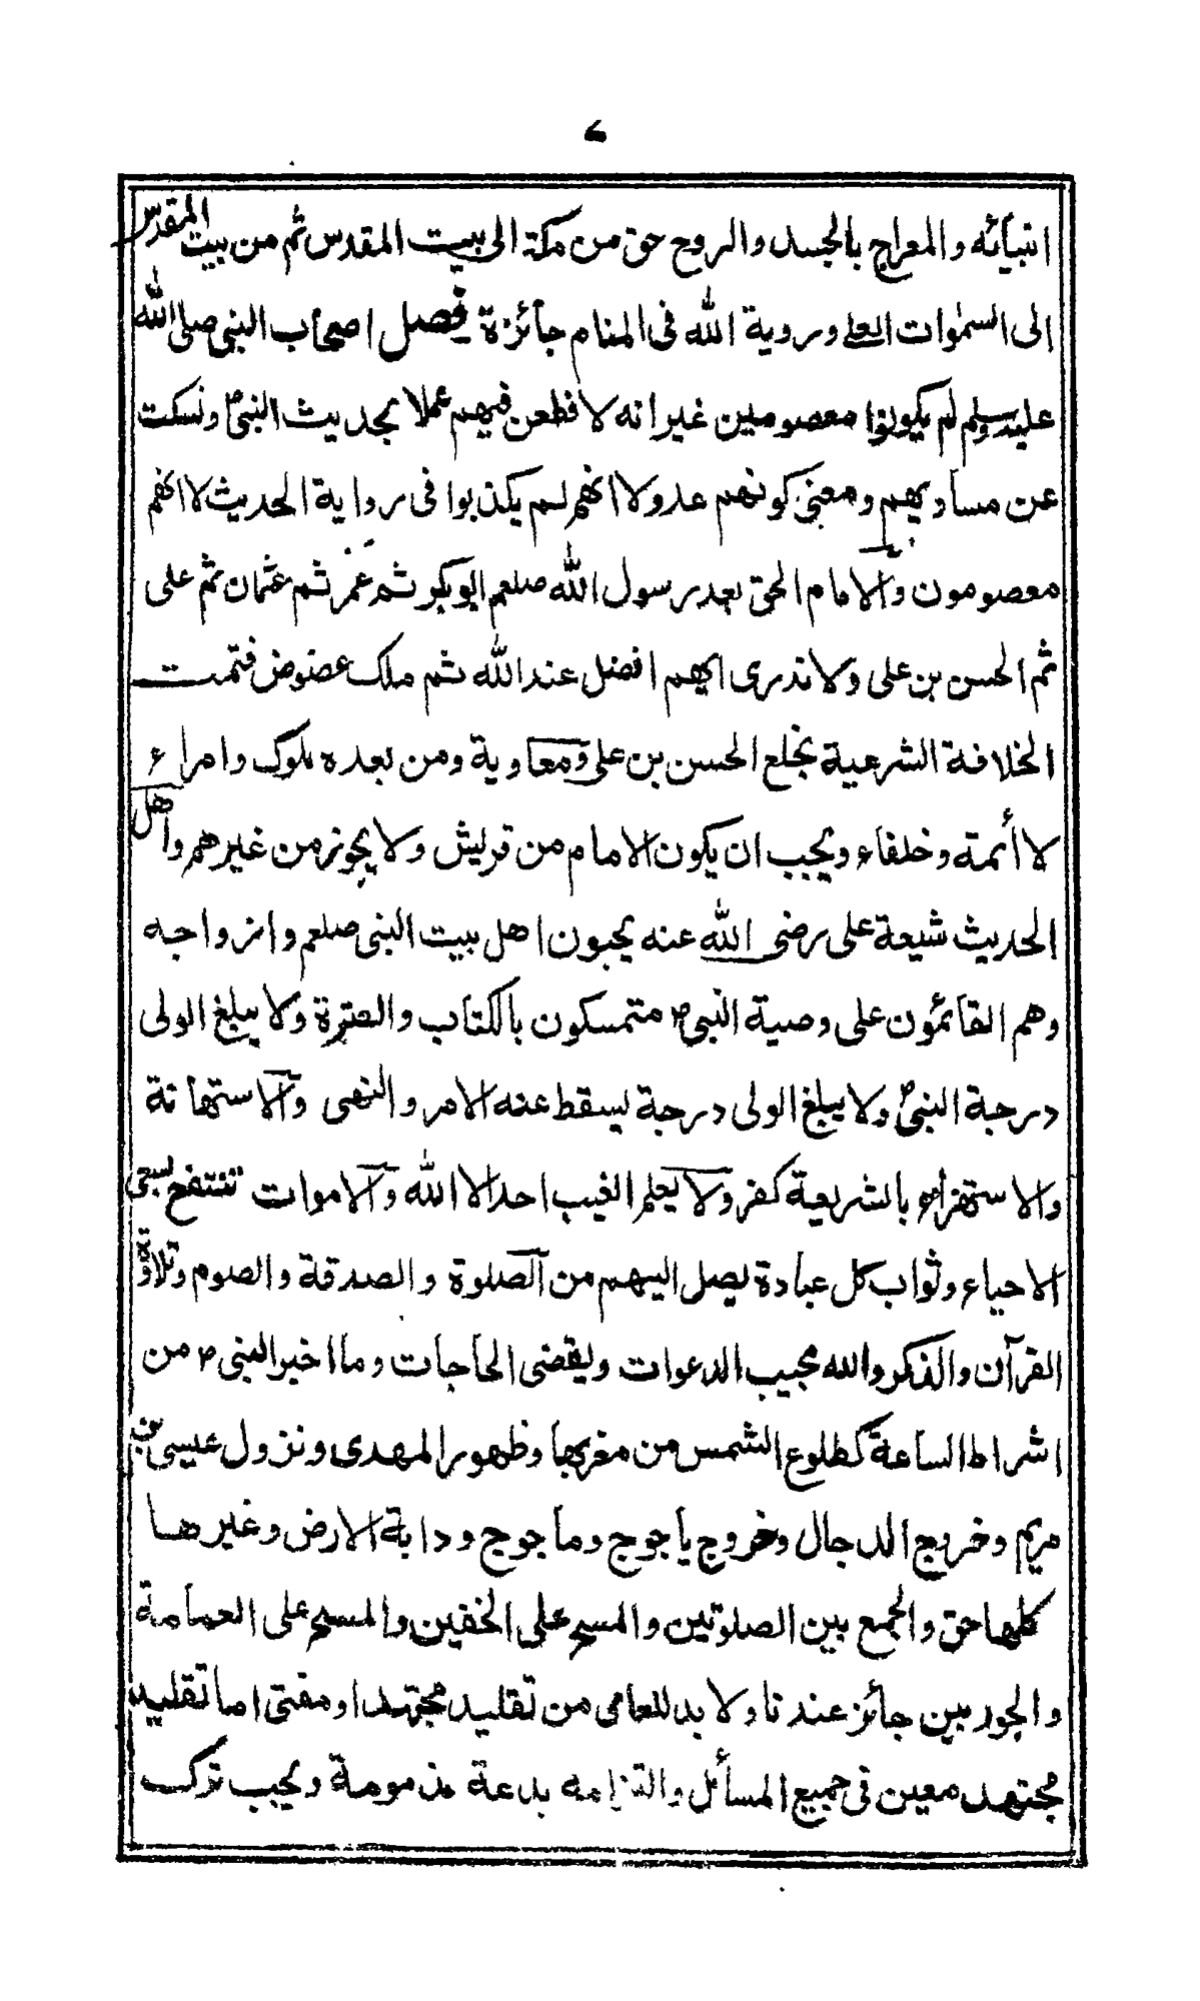 ٧
انبيائه والمعراج بالجسد والروح حق من مكة الى بيت المقدس ثم من بيت المقدس
الى السموات العلى وروية الله فى المنام جائزة فصل اصحاب النبى صلى الله
عليه وسلم لم يكونوا معصومين غير انه لا نطعن فيهم عملا بحديث النبى ص ونسكت
عن مساويهم ومعنى كونهم عدولا انهم لم يكذبوا فى رواية الحديث لا انهم
معصومون والامام الحق بعد رسول الله صلعم ابوبكر ثم عمر ثم عثمان ثم على
ثم الحسن بن على ولا ندرى ايهم افضل عند الله ثم ملك عضوض فتمت
الخلافة الشرعية بخلع الحسن بن على ومعاوية ومن بعده ملوك وامراء
لا أئمة وخلفاء ويجب ان يكون الامام من قريش ولا يجوز من غيرهم واهل
الحديث شيعة على رضى الله عنه يحبون اهل بيت النبى صلعم وازواجه
وهم القائمون على وصية النبى ص متمسكون بالكتاب والعترة ولا يبلغ الولى
درجة النبى ص ولا يبلغ الولى درجة يسقط عنه الامر والنهى والاستهانة
والاستهزاء بالشريعة كفر ولا يعلم الغيب احد الا الله والاموات تنتفع بسعى
الاحياء وثواب كل عبادة يصل اليهم من الصلوة والصدقة والصوم وتلاوة
القرآن والذكر والله مجيب الدعوات ويقضى الحاجات وما اخبر النبى ص من
اشراط الساعة كطلوع الشمس من مغربها وظهور المهدى ونزول عيسى بن
مريم وخروج الدجال وخروج ياجوج وماجوج ودابة الارض وغيرها
كلها حق والجمع بين الصلوتين والمسح على الخفين والمسح على العمامة
والجوربين جائز عندنا ولا بد للعامى من تقليد مجتهد او مفتى اما تقليد
مجتهد معين فى جميع المسائل والتزامه بدعة مذمومة ويجب ترك